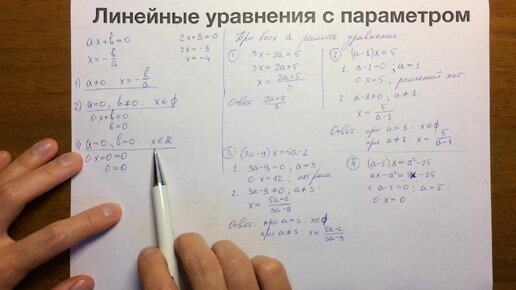 Линейные уравнения с параметром
ax+b=0
x=-b/a
2x+8=0
2x=-8
x=-4
1) a≠0, x=-b/a
2) a=0, b≠0: x∈∅
0·x+b=0
b=0
3) a=0, b=0: x∈R
0·x+0=0
0=0
При всех a решить уравнение
① 3x-2a=5
3x=2a+5
x=2a+5/3
Ответ: 2a+5/3
② (a-1)x=5
1. a-1=0, a=1:
0·x=5, решений нет
2. a-1≠0, a≠1:
x=5/a-1
Ответ:
при a=1: x∈∅
при a≠1: x=5/a-1
③ (3a-9)x=5a-2
1. 3a-9=0; a=3:
0·x=13, нет реш.
2. 3a-9≠0, a≠3:
x=5a-2/3a-9
Ответ: при a=3: x∈∅
при a≠3: x=5a-2/3a-9
④ (a-5)x=a²-25
ax-a²=5x-25
1. a-5=0; a=5:
0·x=0